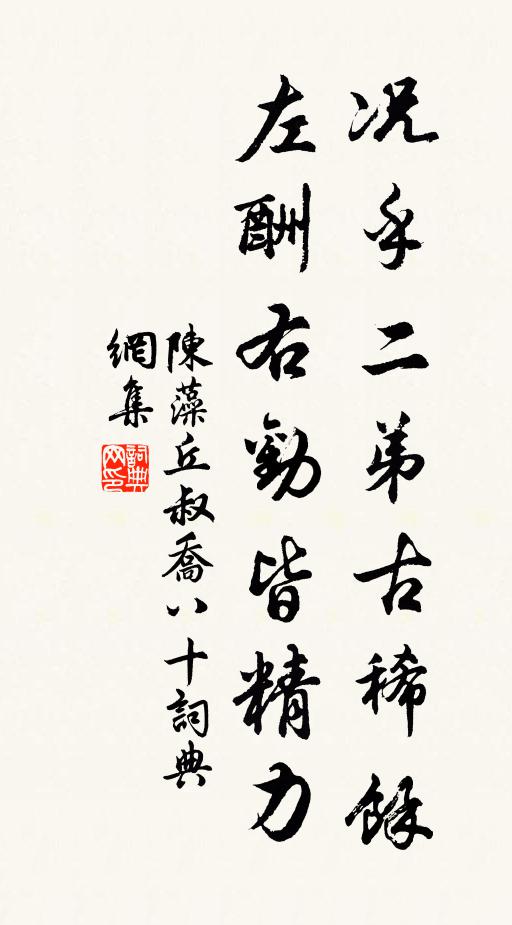 况乎二弟古稀餘
左酬右勸皆精力
陳藻丘叔喬八十詞典
網集
詞典
网印